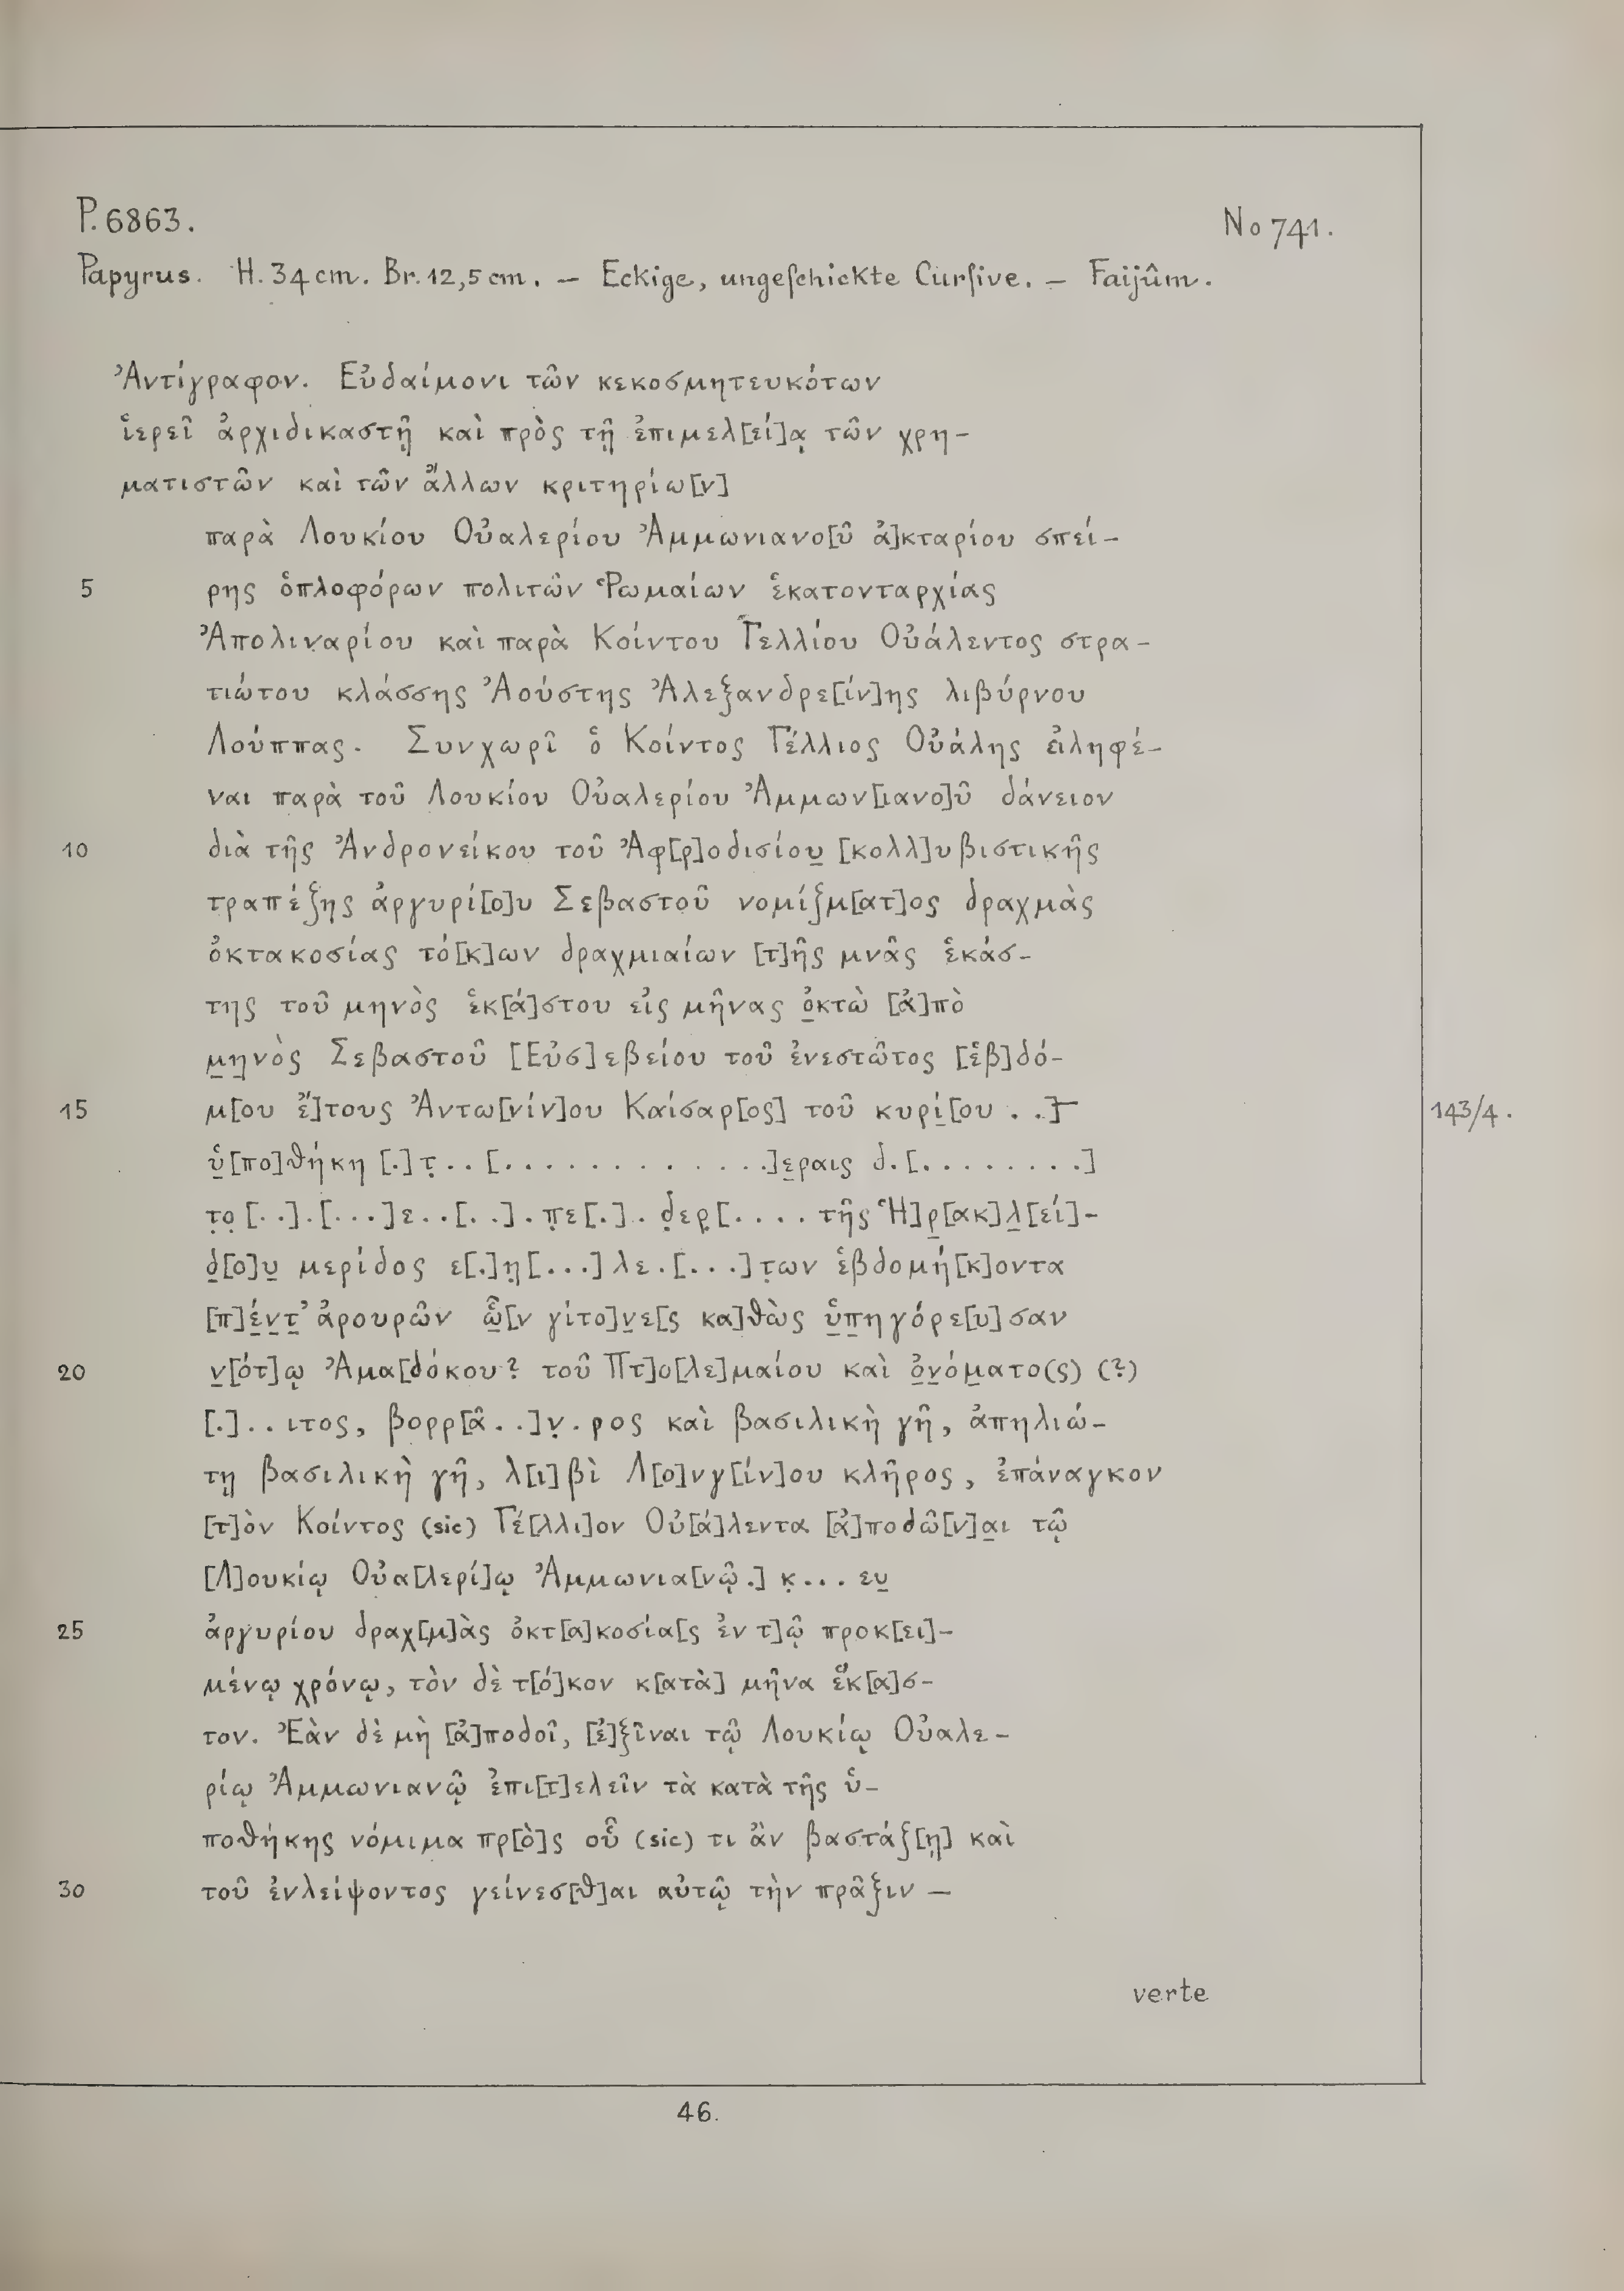 P. 6863. No 741.
Papyrus. H. 34 cm. Br. 12,5 cm. — Eckige, ungeſchickte Curſive. — Faijûm.
Ἀντίγραφον. Εὐδαίμονι τῶν κεκοσμητευκότων
ἱερεῖ ἀρχιδικαστῇ καὶ πρὸς τῇ ἐπιμελ[εί]ᾳ τῶν χρη-
ματιστῶν καὶ τῶν ἄλλων κριτηρίω[ν]
παρὰ Λουκίου Οὐαλερίου Ἀμμωνιανο[ῦ ἀ]κταρίου σπεί-
5 ρης ὁπλοφόρων πολιτῶν Ῥωμαίων ἑκατονταρχίας
Ἀπολιναρίου καὶ παρὰ Κοίντου Γελλίου Οὐάλεντος στρα-
τιώτου κλάσσης Ἀούστης Ἀλεξανδρε[ίν]ης λιβύρνου
Λούππας. Συνχωρῖ ὁ Κοίντος Γέλλιος Οὐάλης εἰληφέ-
ναι παρὰ τοῦ Λουκίου Οὐαλερίου Ἀμμων[ιανο]ῦ δάνειον
10 διὰ τῆς Ἀνδρονείκου τοῦ Ἀφ[ρ]οδισίου̲ [κολλ]υβιστικῆς
τραπέζης ἀργυρί[ο]υ Σεβαστοῦ νομίζμ[ατ]ος δραχμὰς
ὀκτακοσίας τό[κ]ων δραχμιαίων [τ]ῆς μνᾶς ἑκάσ-
της τοῦ μηνὸς ἑκ[ά]στου εἰς μῆνας ὀ̲κτὼ [ἀ]πὸ
μ̲η̲νὸς Σεβαστοῦ [Εὐσ]εβείου τοῦ ἐνεστῶτος [ἑβ]δό-
15 μ[ου ἔ]τους Ἀντω[νίν]ου Καίσαρ[ος] τοῦ κυρί̲[ου . .] 143/4.
ὑ̲[πο]θήκη [.]τ̣ . . [. . . . . . . . . . . . .]ε̲ραις δ . [. . . . . . . .]
τ̣ο̣ [. .] . [. . .]ε . . [. .] . π̣ε[.] . δ̣ερ̣[. . . . τῆς Ἡ]ρ̲[ακ]λ̲[εί]-
δ̲[ο]υ̲ μερίδος ε[.]η̣[. . .] λε . [. . .]τ̣ων ἑβδομή[κ]οντα
[π]έ̲ν̲τ̲’ ἀρουρῶν ὧ̲[ν γίτο]ν̲ε[ς κα]θὼς ὑ̲π̲ηγόρε[υ]σαν
20 ν̲[ότ]ῳ Ἀμα[δόκου? τοῦ Πτ]ο[λε]μαίου καὶ ὀ̲ν̲όμ̲ατο(ς) (?)
[.] . . ιτος, βορρ[ᾶ . .]ν̣ . ρος καὶ βασιλικὴ γῆ, ἀπηλιώ-
τῃ βασιλικὴ γῆ, λ[ι]βὶ Λ[ο]νγ[ίν]ου κλῆρος, ἐπάναγκον
[τ]ὸν Κοίντος (sic) Γέ[λλι]ον Οὐ[ά]λεντα [ἀ]ποδῶ[ν]α̲ι τῷ
[Λ]ουκίῳ Οὐα[λερί]ῳ Ἀμμωνια[νῷ .] κ̣ . . . ευ̲
25 ἀργυρίου δραχ[μ]ὰς ὀκτ[α]κοσία[ς ἐν τ]ῷ προκ[ει]-
μένῳ χρόνῳ, τὸν δὲ τ[ό]κον κ[ατὰ] μῆνα ἕκ[α]σ-
τον. Ἐὰν δὲ μὴ [ἀ]ποδοῖ, [ἐ]ξῖναι τῷ Λουκίῳ Οὐαλε-
ρίῳ Ἀμμωνιανῷ ἐπι[τ]ελεῖν τὰ κατὰ τῆς ὑ-
ποθήκης νόμιμα πρ[ὸ]ς οὗ (sic) τι ἂν βαστάζ[ῃ] καὶ
30 τοῦ ἐνλείψοντος γείνεσ[θ]αι αὐτῷ τὴν πρᾶξιν —
verte
46.